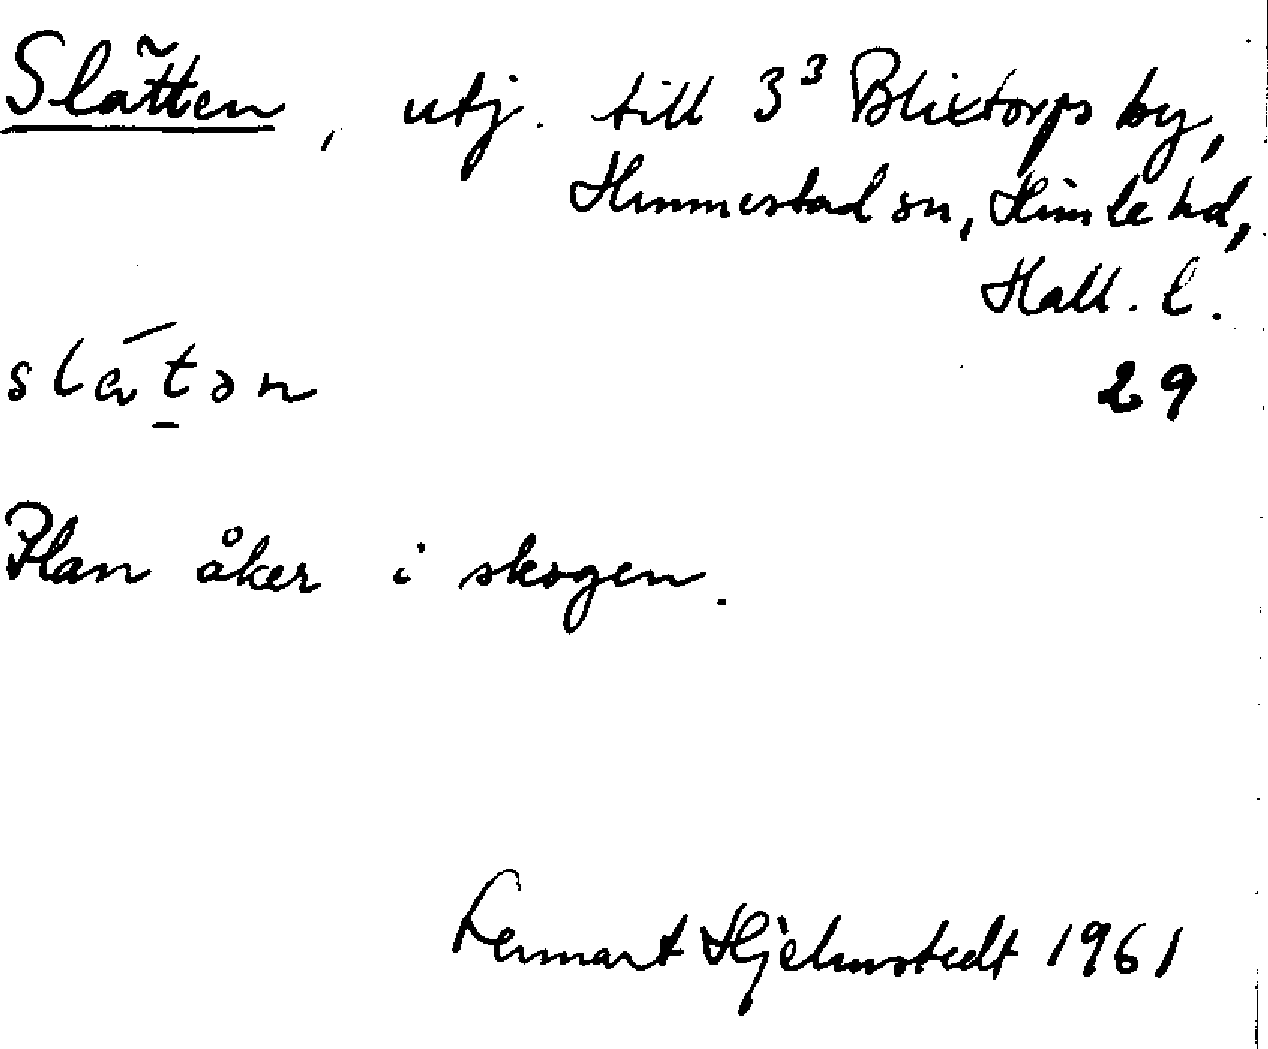 Slätten, utj. till 3³ Blixtorps by,
Hunnestad sn, Himle hd,
Hall. l.
slǽt̠ən 29
Plan åker i skogen.
Lennart Hjelmstedt 1961